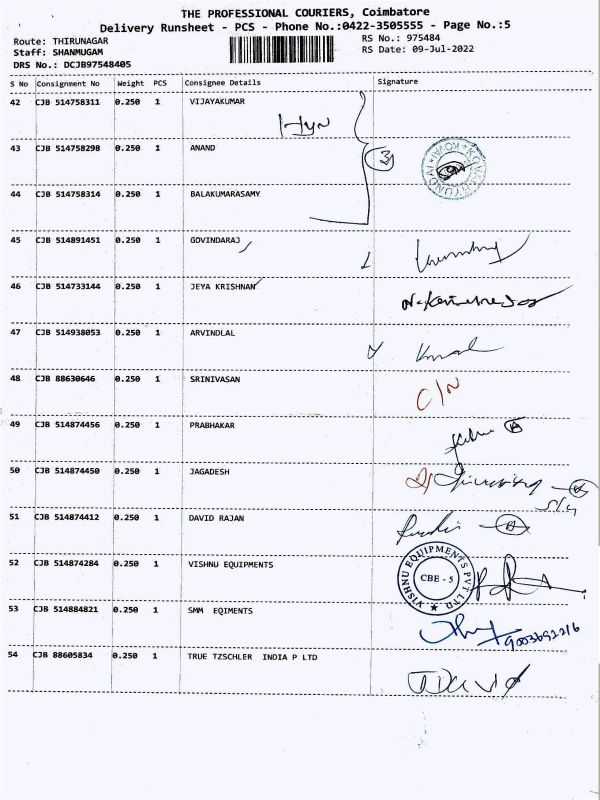 THE PROFESSIONAL COURIERS, Coimbatore
Delivery Runsheet - PCS - Phone No.:0422-3505555 - Page No.:5
Route: THIRUNAGAR
RS No.: 975484
Staff: SHANMUGAM
RS Date: 09-Jul-2022
DRS No.: DCJB97548405
S No Consignment No Weight PCS Consignee Details Signature
42 CJB 514758311 0.250 1 VIJAYAKUMAR
43 CJB 514758298 0.250 1 ANAND
3
44 CJB 514758314 0.250 1 BALAKUMARASAMY
45 CJB 514891451 0.250 1 GOVINDARAJ
46 CJB 514733144 0.250 1 JEYA KRISHNAN
47 CJB 514938053 0.250 1 ARVINDLAL
48 CJB 88630646 0.250 1 SRINIVASAN
C/N
49 CJB 514874456 0.250 1 PRABHAKAR
50 CJB 514874450 0.250 1 JAGADESH
51 CJB 514874412 0.250 1 DAVID RAJAN
52 CJB 514874284 0.250 1 VISHNU EQUIPMENTS
VISHNU EQUIPMENTS PVT LTD
CBE - 5
53 CJB 514884821 0.250 1 SMM EQIMENTS
54 CJB 88605834 0.250 1 TRUE TZSCHLER INDIA P LTD
David